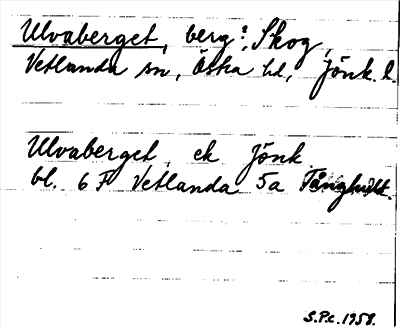 Ulvaberget, berg?, Skog,
Vetlanda sn, Östra hd, Jönk. l.
Ulvaberget, ek Jönk.
bl. 6 F Vetlanda 5a
S.P.c. 1958.